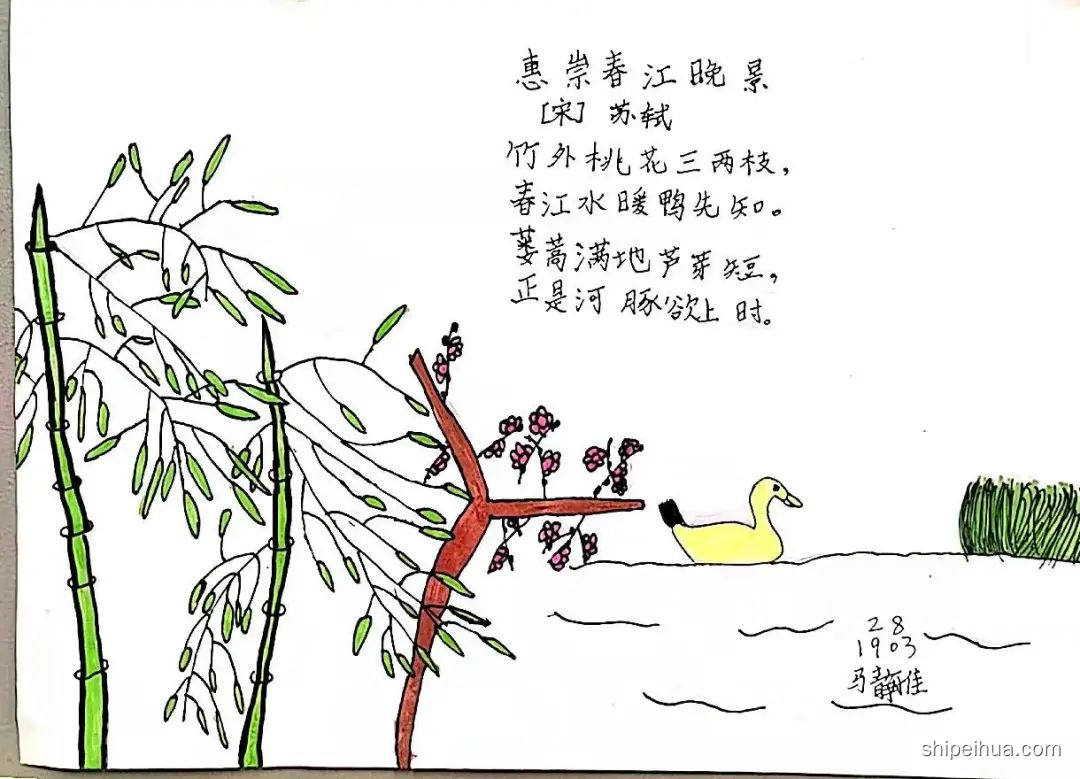 惠崇春江晚景
[宋] 苏轼
竹外桃花三两枝，
春江水暖鸭先知。
蒌蒿满地芦芽短，
正是河豚欲上时。
28
1903
马静佳
shipeihua.com